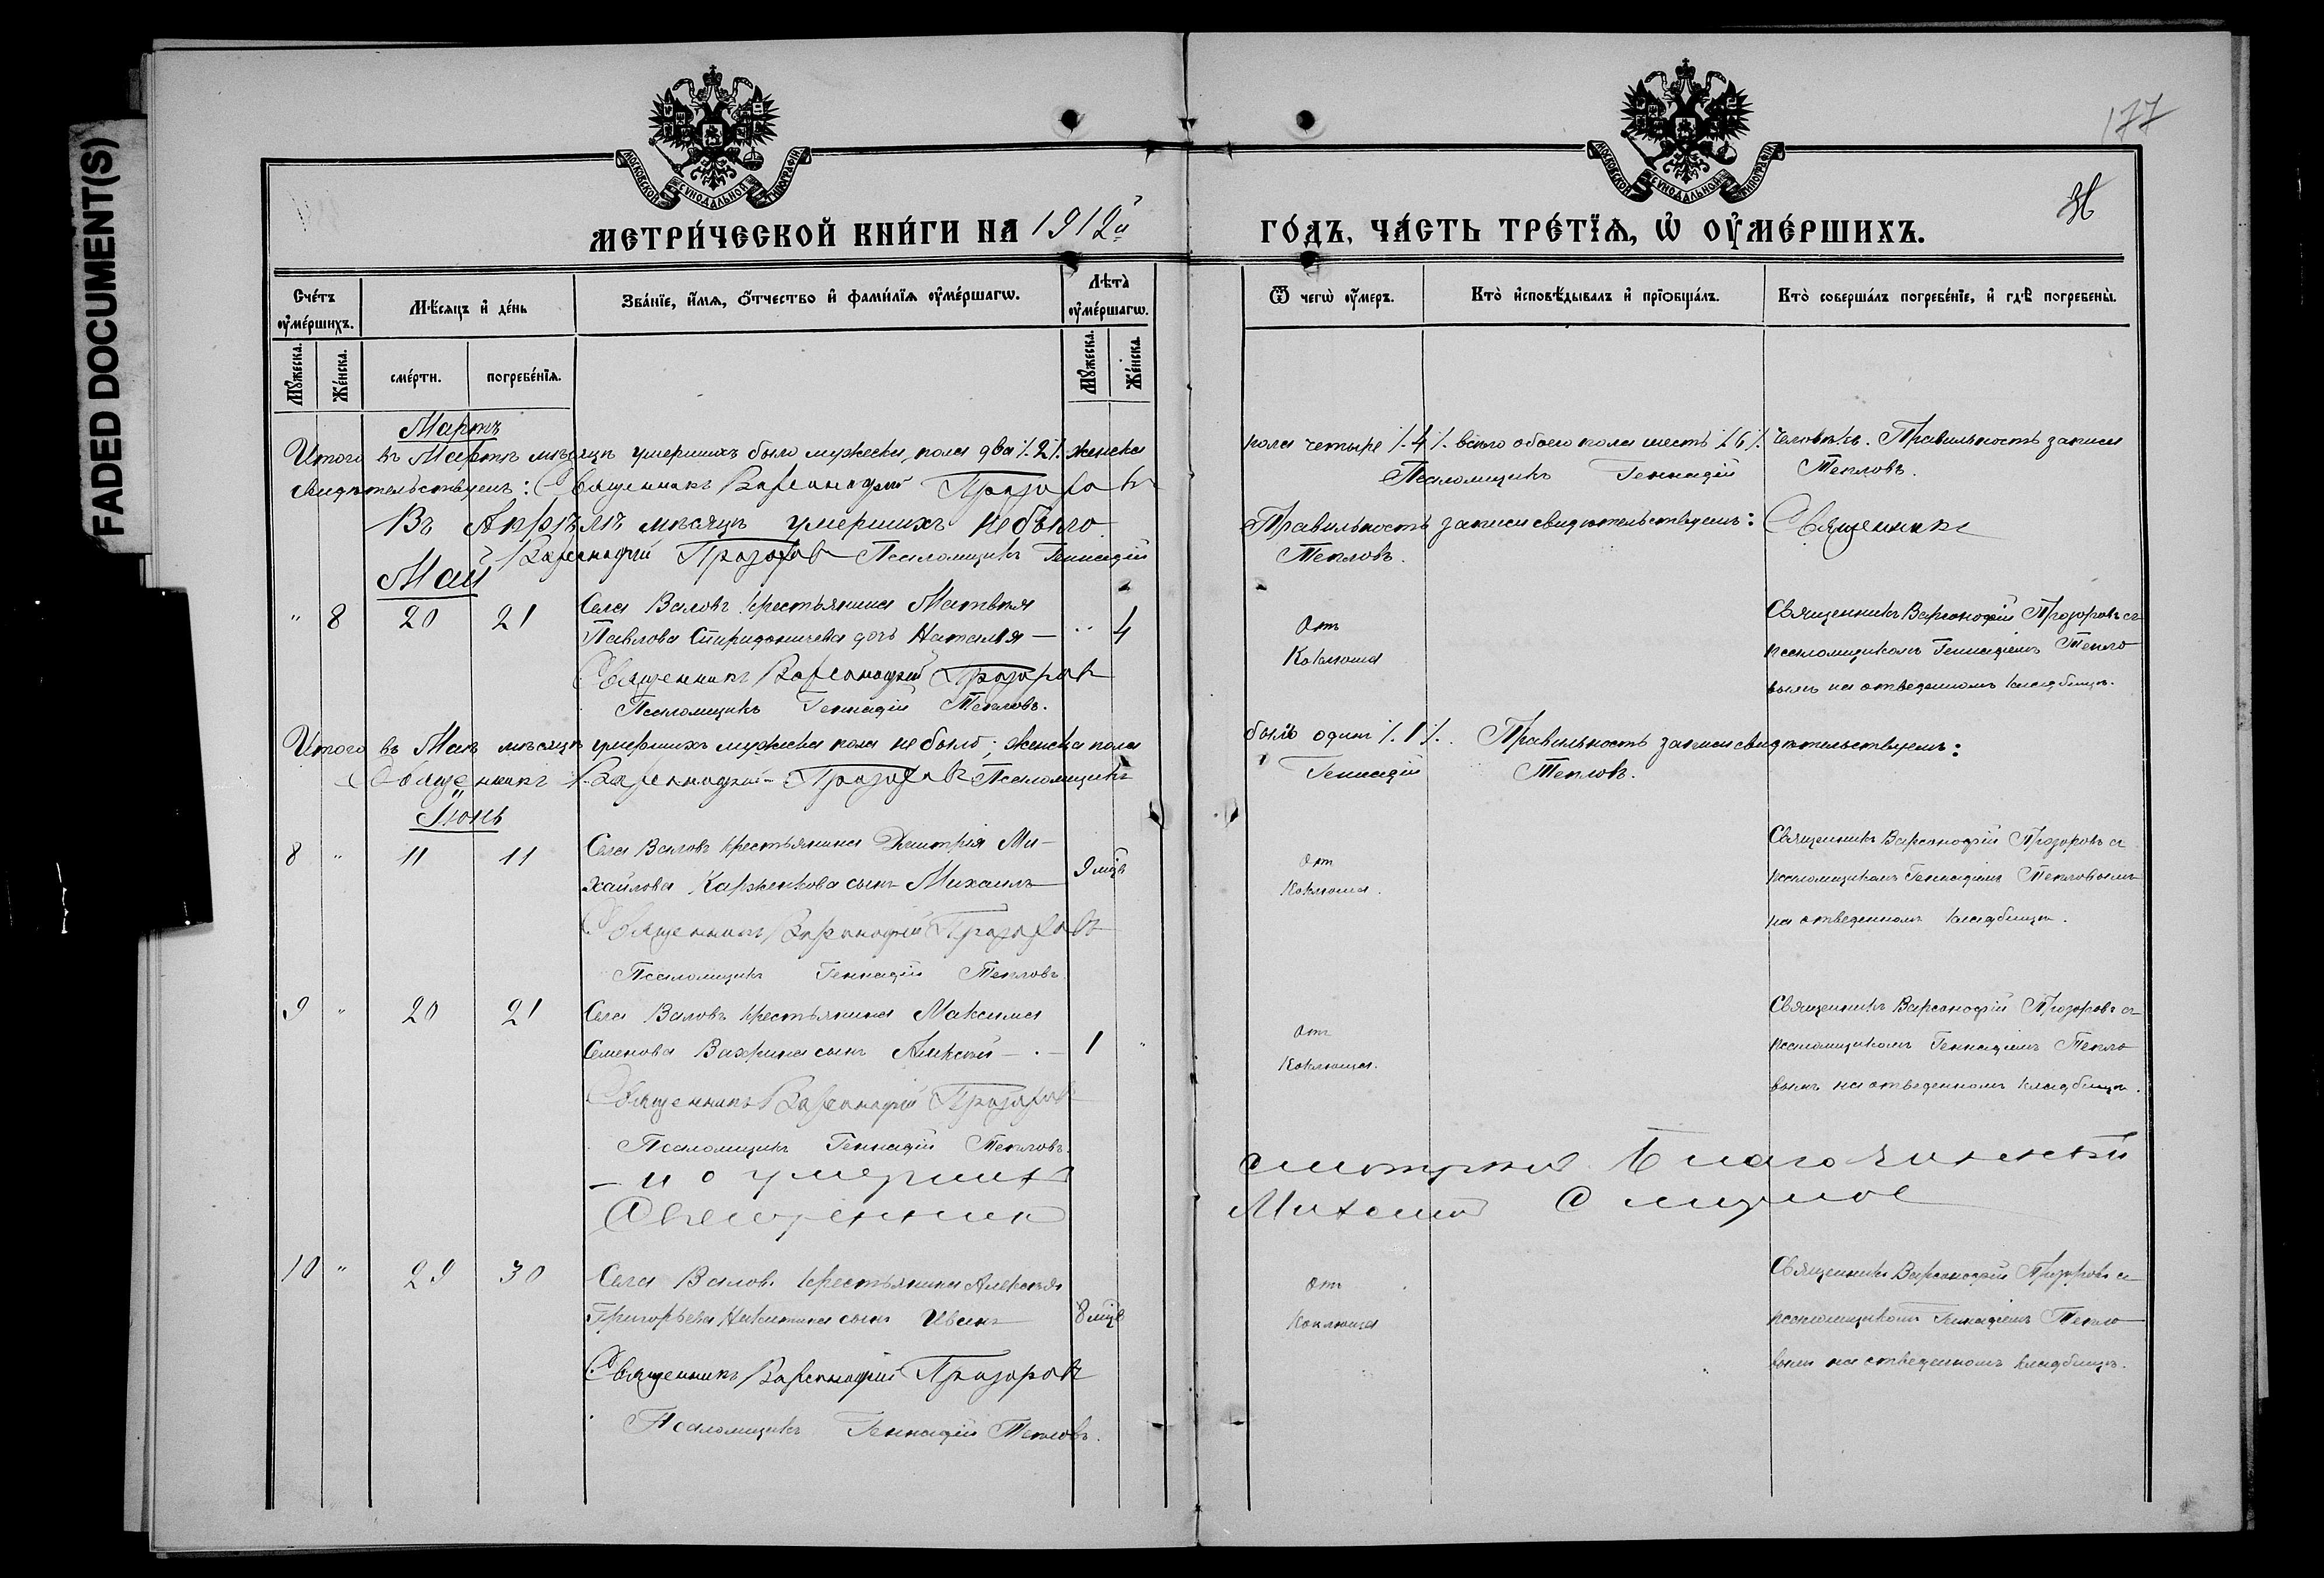 FADED DOCUMENT(S)
МОСКОВСКОЙ СУНОДАЛЬНОЙ ТИПОГРАФІИ
МОСКОВСКОЙ СУНОДАЛЬНОЙ ТИПОГРАФІИ
177
МЕТРИ́ЧЕСКОЙ КНИ́ГИ НА 1912й
ГО́ДЪ, ЧА́СТЬ ТРЕ́ТЇѦ, Ѡ҆ ОУ҆МЕ́РШИХЪ.
Сче́тъ оу҆ме́ршихъ.
Мѣ́сяцъ и҆ де́нь
Зва́нїе, и҆́мѧ, ѻ҆́тчество и҆ фами́лїѧ оу҆ме́ршагѡ.
Лѣта̀ оу҆ме́ршагѡ.
Ѿ чегѡ̀ оу҆́меръ.
Кто̀ и҆сповѣ́дывалъ и҆ прїѡбща́лъ.
Кто̀ соверша́лъ погребе́нїе, и҆ гдѣ̀ погребены̀.
Мꙋ́жеска.
Же́нска.
сме́рти.
погребе́нїѧ.
Мꙋ́жеска.
Же́нска.
Мартъ
Итого въ Мартѣ мѣсяцѣ умершихъ было мужеска пола два /.2/. женска
пола четыре /.4/. всего обоего пола шесть /.6/. человѣкъ. Правильность записи
свидѣтельствуемъ: Священникъ Варсонофій Прозоровъ
Псаломщикъ Геннадій Тепловъ.
Въ Апрѣлѣ мѣсяцѣ умершихъ не было.
Правильность записи свидѣтельствуемъ: Священникъ
Варсонофій Прозоровъ Псаломщикъ Геннадій
Тепловъ.
Май
" 8 20 21 Села Валовъ крестьянина Матвѣя
Павлова Спиридоничева дочь Наталія — " 4
Священникъ Варсонофій Прозоровъ
Псаломщикъ Геннадій Тепловъ.
Отъ
Коклюша
Священникъ Варсонофій Прозоровъ съ
псаломщикомъ Геннадіемъ Тепло
вымъ на отведенномъ кладбищѣ.
Итого въ Маѣ мѣсяцѣ умершихъ мужеска пола не было; женска пола
было одинъ /.1/. Правильность записи свидѣтельствуемъ:
Священникъ Варсонофій Прозоровъ Псаломщикъ
Геннадій Тепловъ.
Іюнь
8 " 11 11 Села Валовъ крестьянина Дмитрія Ми-
хайлова Карженкова сынъ Михаилъ 9 мцв
Священникъ Варсонофій Прозоровъ
Псаломщикъ Геннадій Тепловъ
Отъ
Коклюша.
Священникъ Варсонофій Прозоровъ съ
псаломщикомъ Геннадіемъ Тепловымъ
на отведенномъ кладбищѣ.
9 " 20 21 Села Валовъ крестьянина Максима
Семенова Вахрина сынъ Алексѣй — 1 "
Священникъ Варсонофій Прозоровъ
Псаломщикъ Геннадій Тепловъ.
Отъ
Коклюша.
Священникъ Варсонофій Прозоровъ съ
псаломщикомъ Геннадіемъ Тепло
вымъ на отведенномъ кладбищѣ.
— и о умершихъ
смотрѣлъ Благочинный
Священникъ
Михаилъ Смирнов
10 " 29 30 Села Валовъ крестьянина Алексѣя
Григорьева Никитина сынъ Иванъ 8 мцв
Священникъ Варсонофій Прозоровъ
Псаломщикъ Геннадій Тепловъ.
Отъ
Коклюша
Священникъ Варсонофій Прозоровъ съ
псаломщикомъ Геннадіемъ Тепло
вымъ на отведенномъ кладбищѣ.